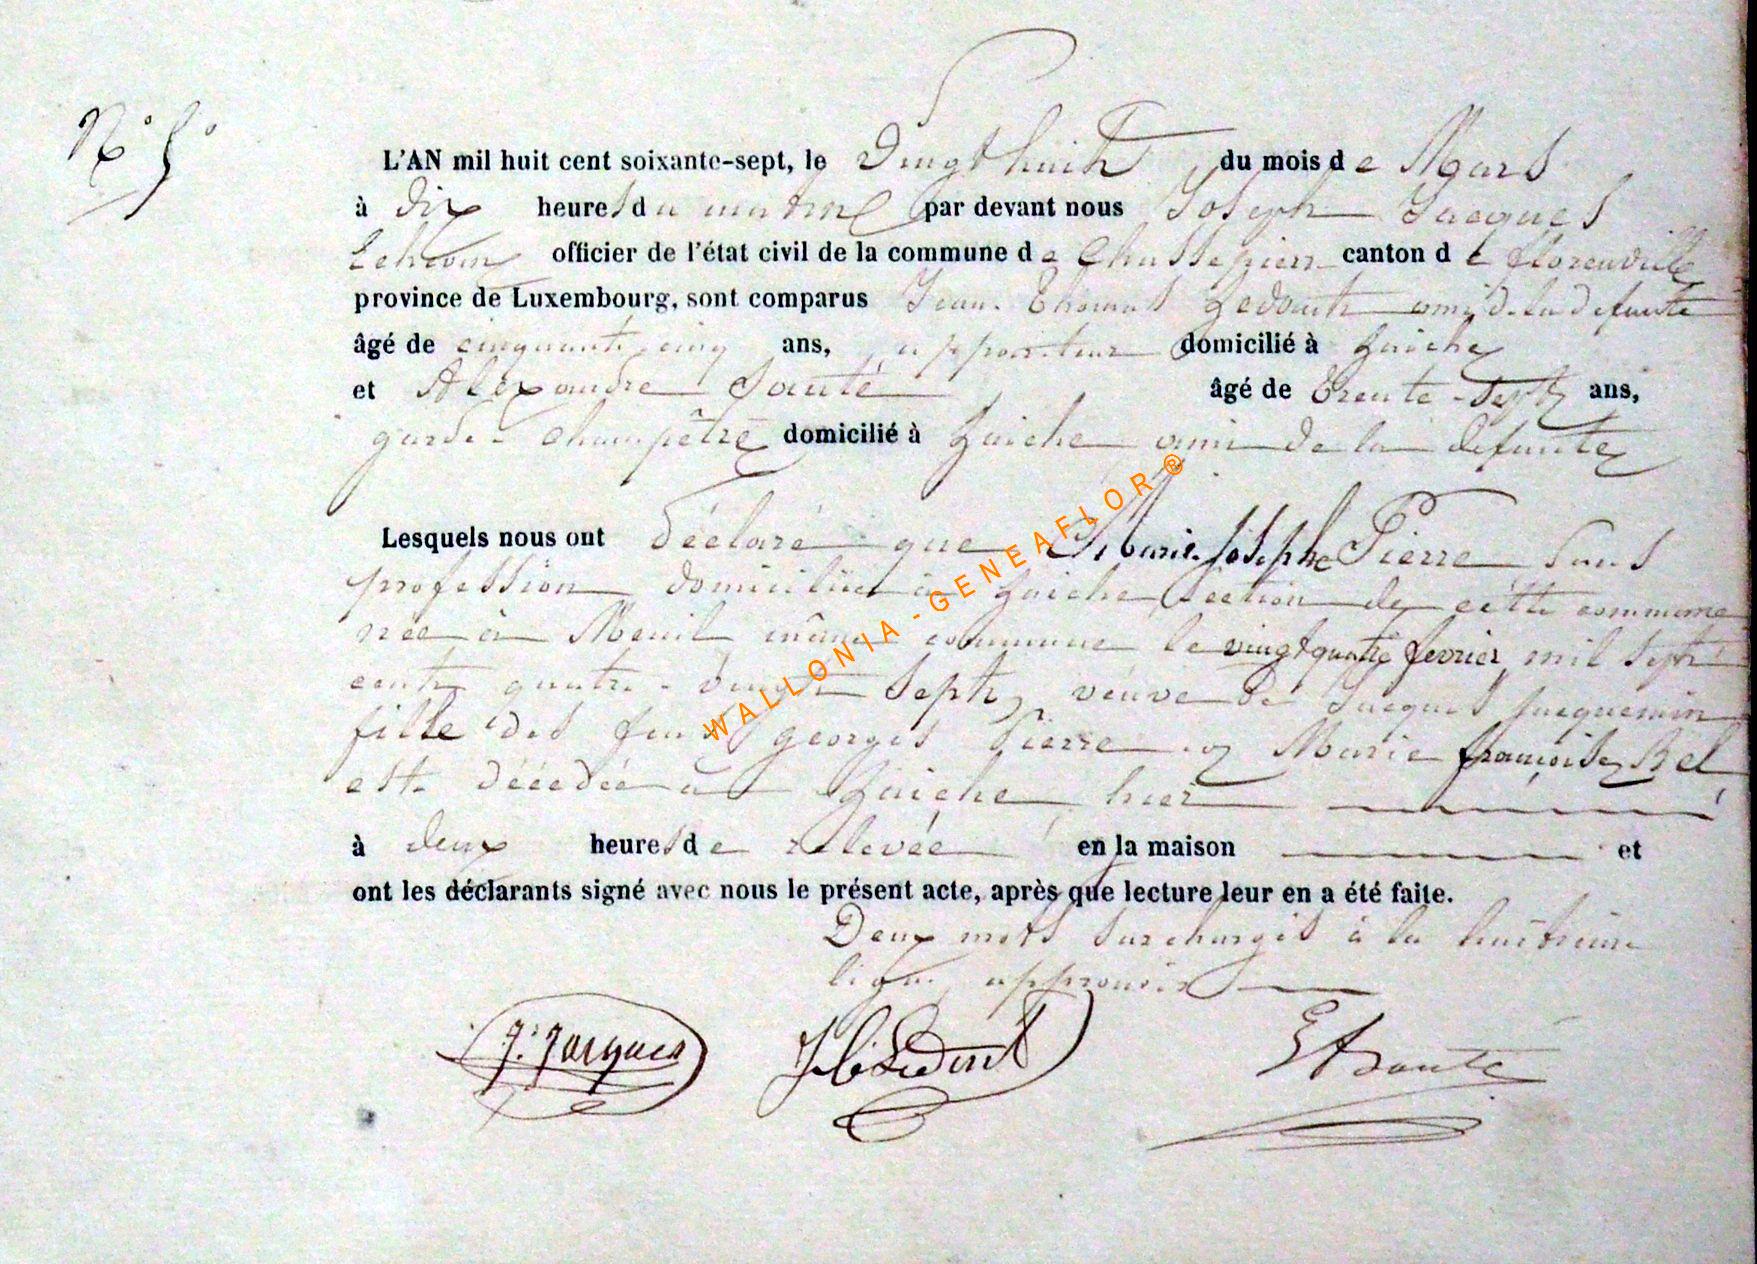 N° 5°
L'AN mil huit cent soixante-sept, le Vingt huit du mois de Mars
à Dix heures du matin par devant nous Joseph Jacques
Echevin officier de l'état civil de la commune de Chassepierre canton de florenville
province de Luxembourg, sont comparus Jean. Thomas Ledent ami de la defunte
âgé de cinquante cinq ans, domicilié à Laiche
et Alexandre Santé âgé de Trente-Sept ans,
garde-champêtre domicilié à Laiche ami de la defunte
Lesquels nous ont déclaré que Marie. Josephe Pierre Sans
profession domiciliée à Laiche section de cette commune
née à Menil même commune le vingt quatre fevrier mil sept
cent quatre-vingt sept, veuve de Jacques Jacquemin
fille des feus georges Pierre et Marie françoise Bel
est décédée à Laiche hier
à deux heures de relevée en la maison et
ont les déclarants signé avec nous le présent acte, après que lecture leur en a été faite.
Deux mots surchargés à la huitieme
ligne approuvés
J. Jacques
Ledent
Santé
WALLONIA-GENEAFLOR®